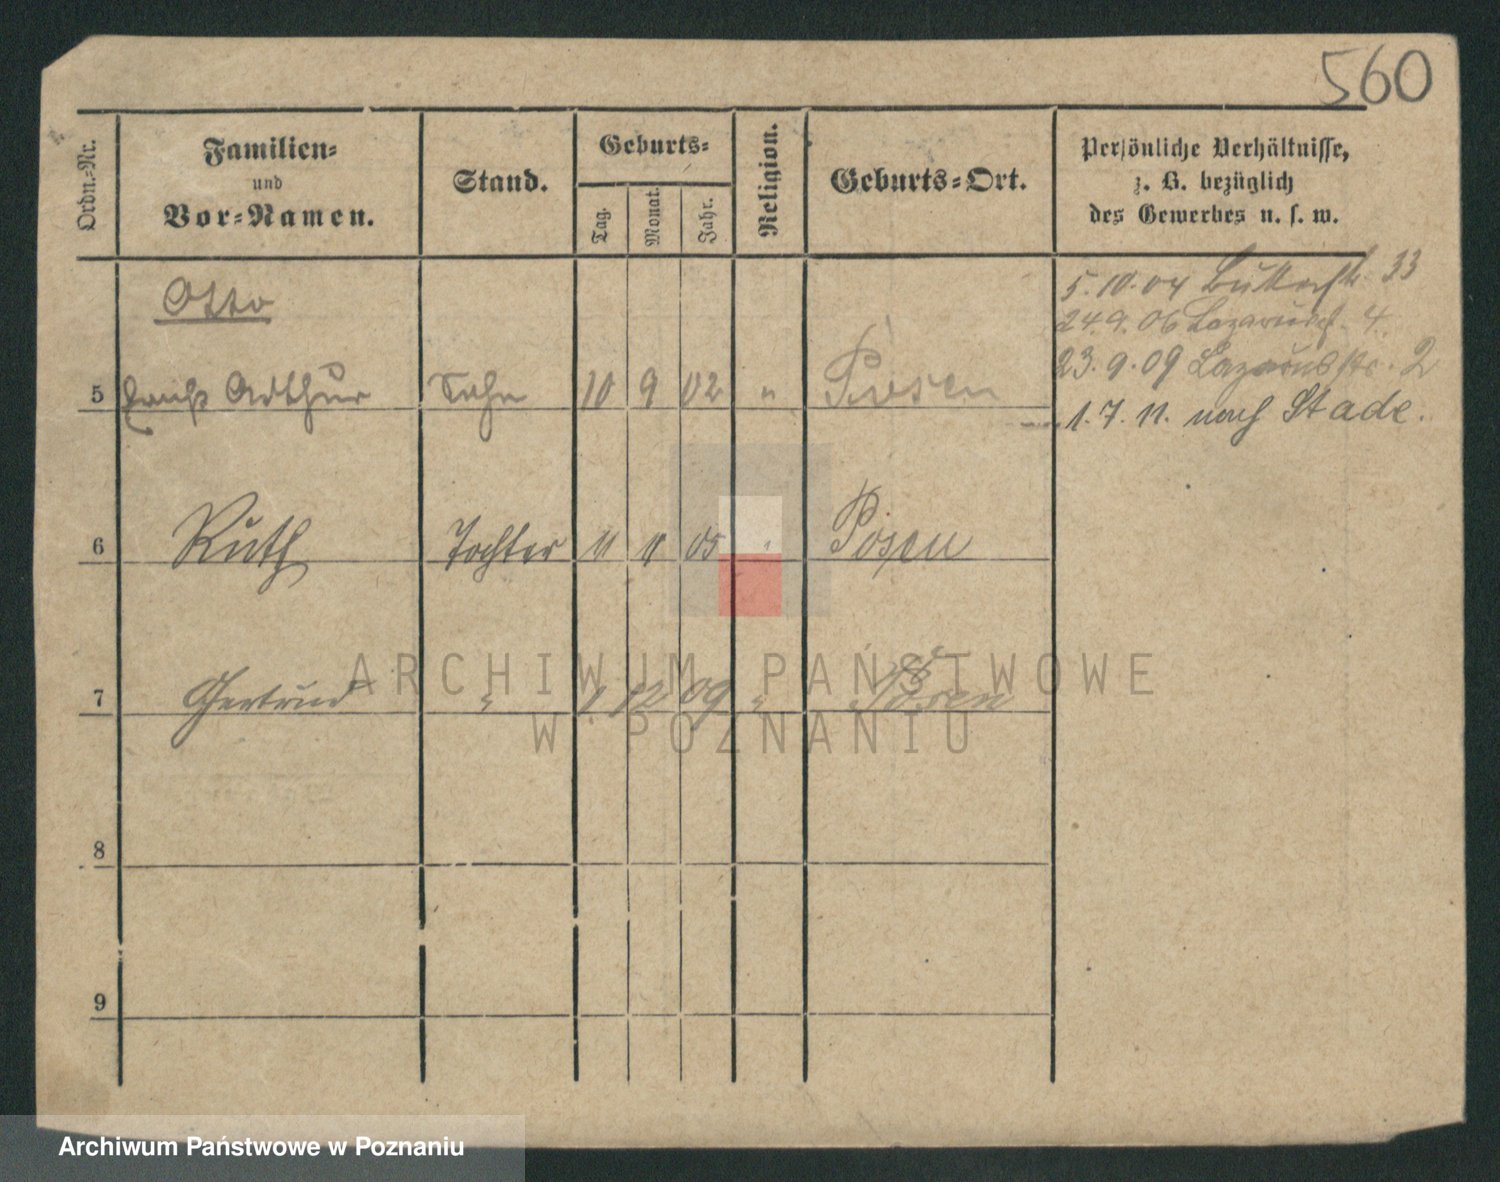 560
Ordn.-Nr.
Familien-
und
Vor-Namen.
Stand.
Geburts-
Tag.
Monat.
Jahr.
Religion.
Geburts-Ort.
Persönliche Verhältnisse,
z. B. bezüglich
des Gewerbes u. s. w.
Otto
5 Arthur Sohn 10 9 02 " Posen
6 Ruth Tochter 11 11 05 " Posen
7 Gertrud " 1 12 09 " Posen
8
9
5.10.04 33
24.9.06 Lazarusstr. 4.
23.9.09 Lazarusstr. 2
1.7.11. nach Stade.
ARCHIWUM PAŃSTWOWE
W POZNANIU
Archiwum Państwowe w Poznaniu